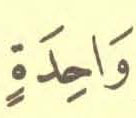 وَاحِدَةٍ